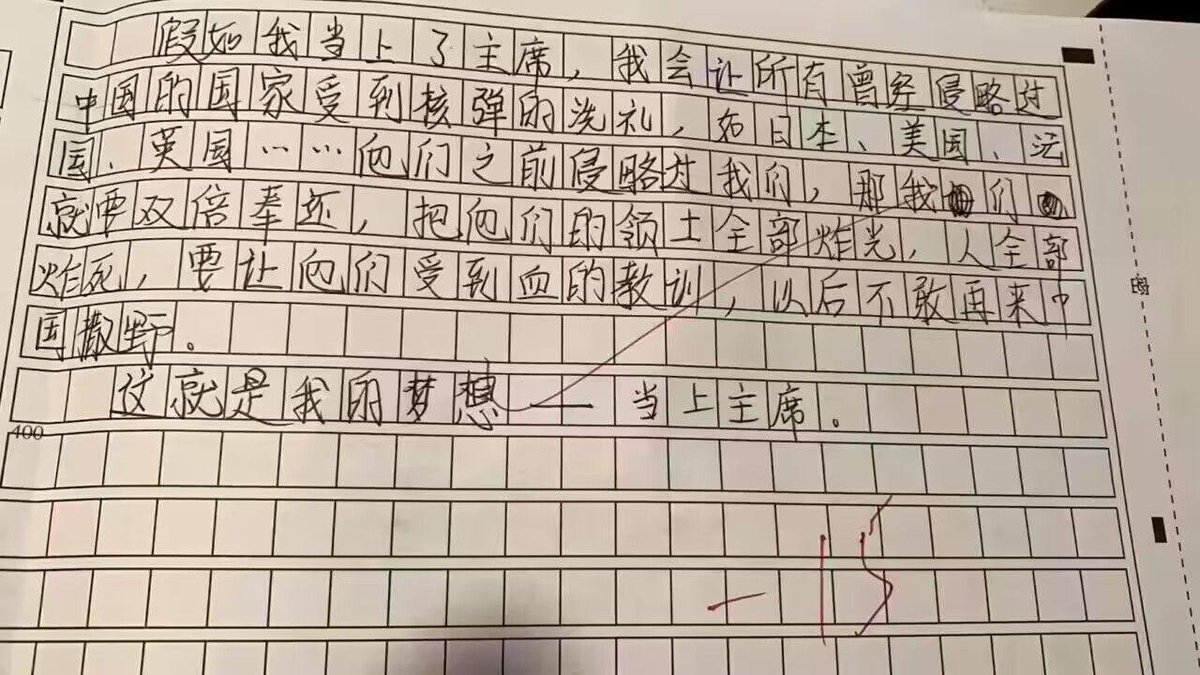 假如我当上了主席，我会让所有曾经侵略过
中国的国家受到核弹的洗礼，如日本、美国、法
国、英国……他们之前侵略过我们，那我们
就要双倍奉还，把他们的领土全部炸光，人全部
炸死，要让他们受到血的教训，以后不敢再来中
国撒野。
这就是我的梦想——当上主席。
400
-15